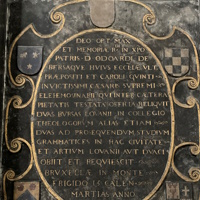 DEO OPT MAX
ET MEMORIÆ R IN XPO
PATRIS D ODOARDI DE
BERSAQVE HVIVS ECCLESIÆ
PRÆPOSITI ET CAROLI QVINTI
INVICTISSIMI CÆSARIS SVPREMI
ELEEMOSINARII QVI INTER CÆTERA
PIETATIS TESTATVS OFFICIA RELIQVIT
DVAS BVRSAS LOVANII IN COLLEGIO
THEOLOGORVM ALIAS ETIAM
DVAS AD PROSEQVENDVM STVDIVM
GRAMMATICES IN HAC CIVITATE
ET ARTIVM LOVANII AVT DVACI
OBIIT ET REQVIESCIT
BRVXELLÆ IN MONTE
FRIGIDO CALEN
MARTIAS ANNO